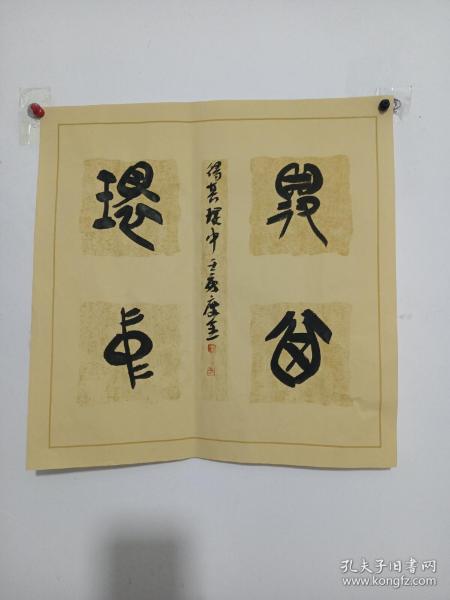 得
其
環
中
得其環中
孔夫子旧书网
www.kongfz.com